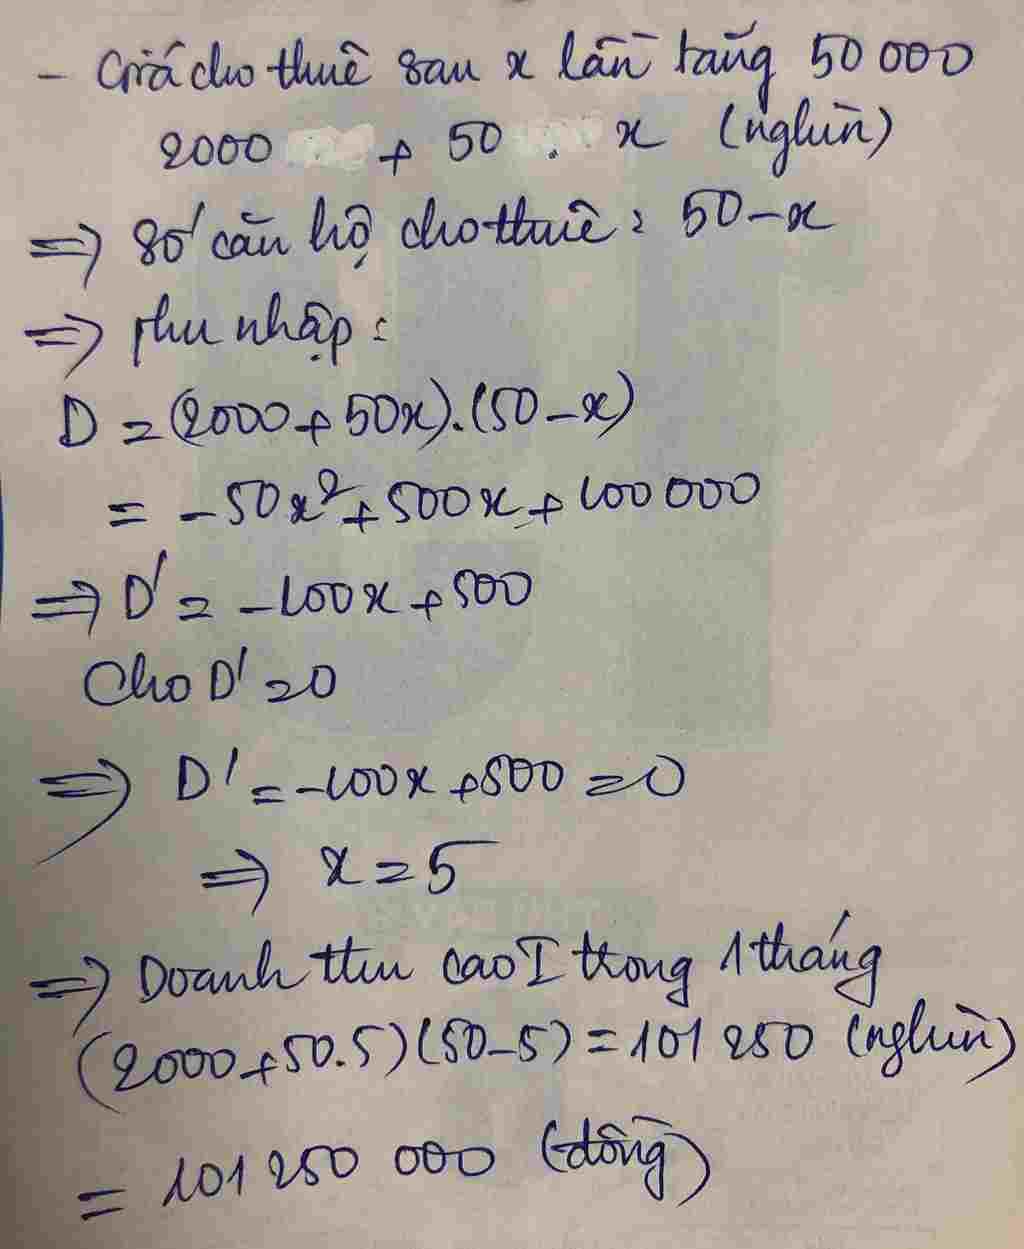 - Giá cho thuê sau x lần tăng 50 000
2000 + 50 . x (nghìn)
=> số căn hộ cho thuê : 50 - x
=> thu nhập :
D = (2000 + 50x).(50 - x)
= -50x² + 500x + 100 000
=> D' = -100x + 500
Cho D' = 0
=> D' = -100x + 500 = 0
=> x = 5
=> Doanh thu cao I trong 1 tháng
(2000 + 50.5)(50 - 5) = 101 250 (nghìn)
= 101 250 000 (đồng)